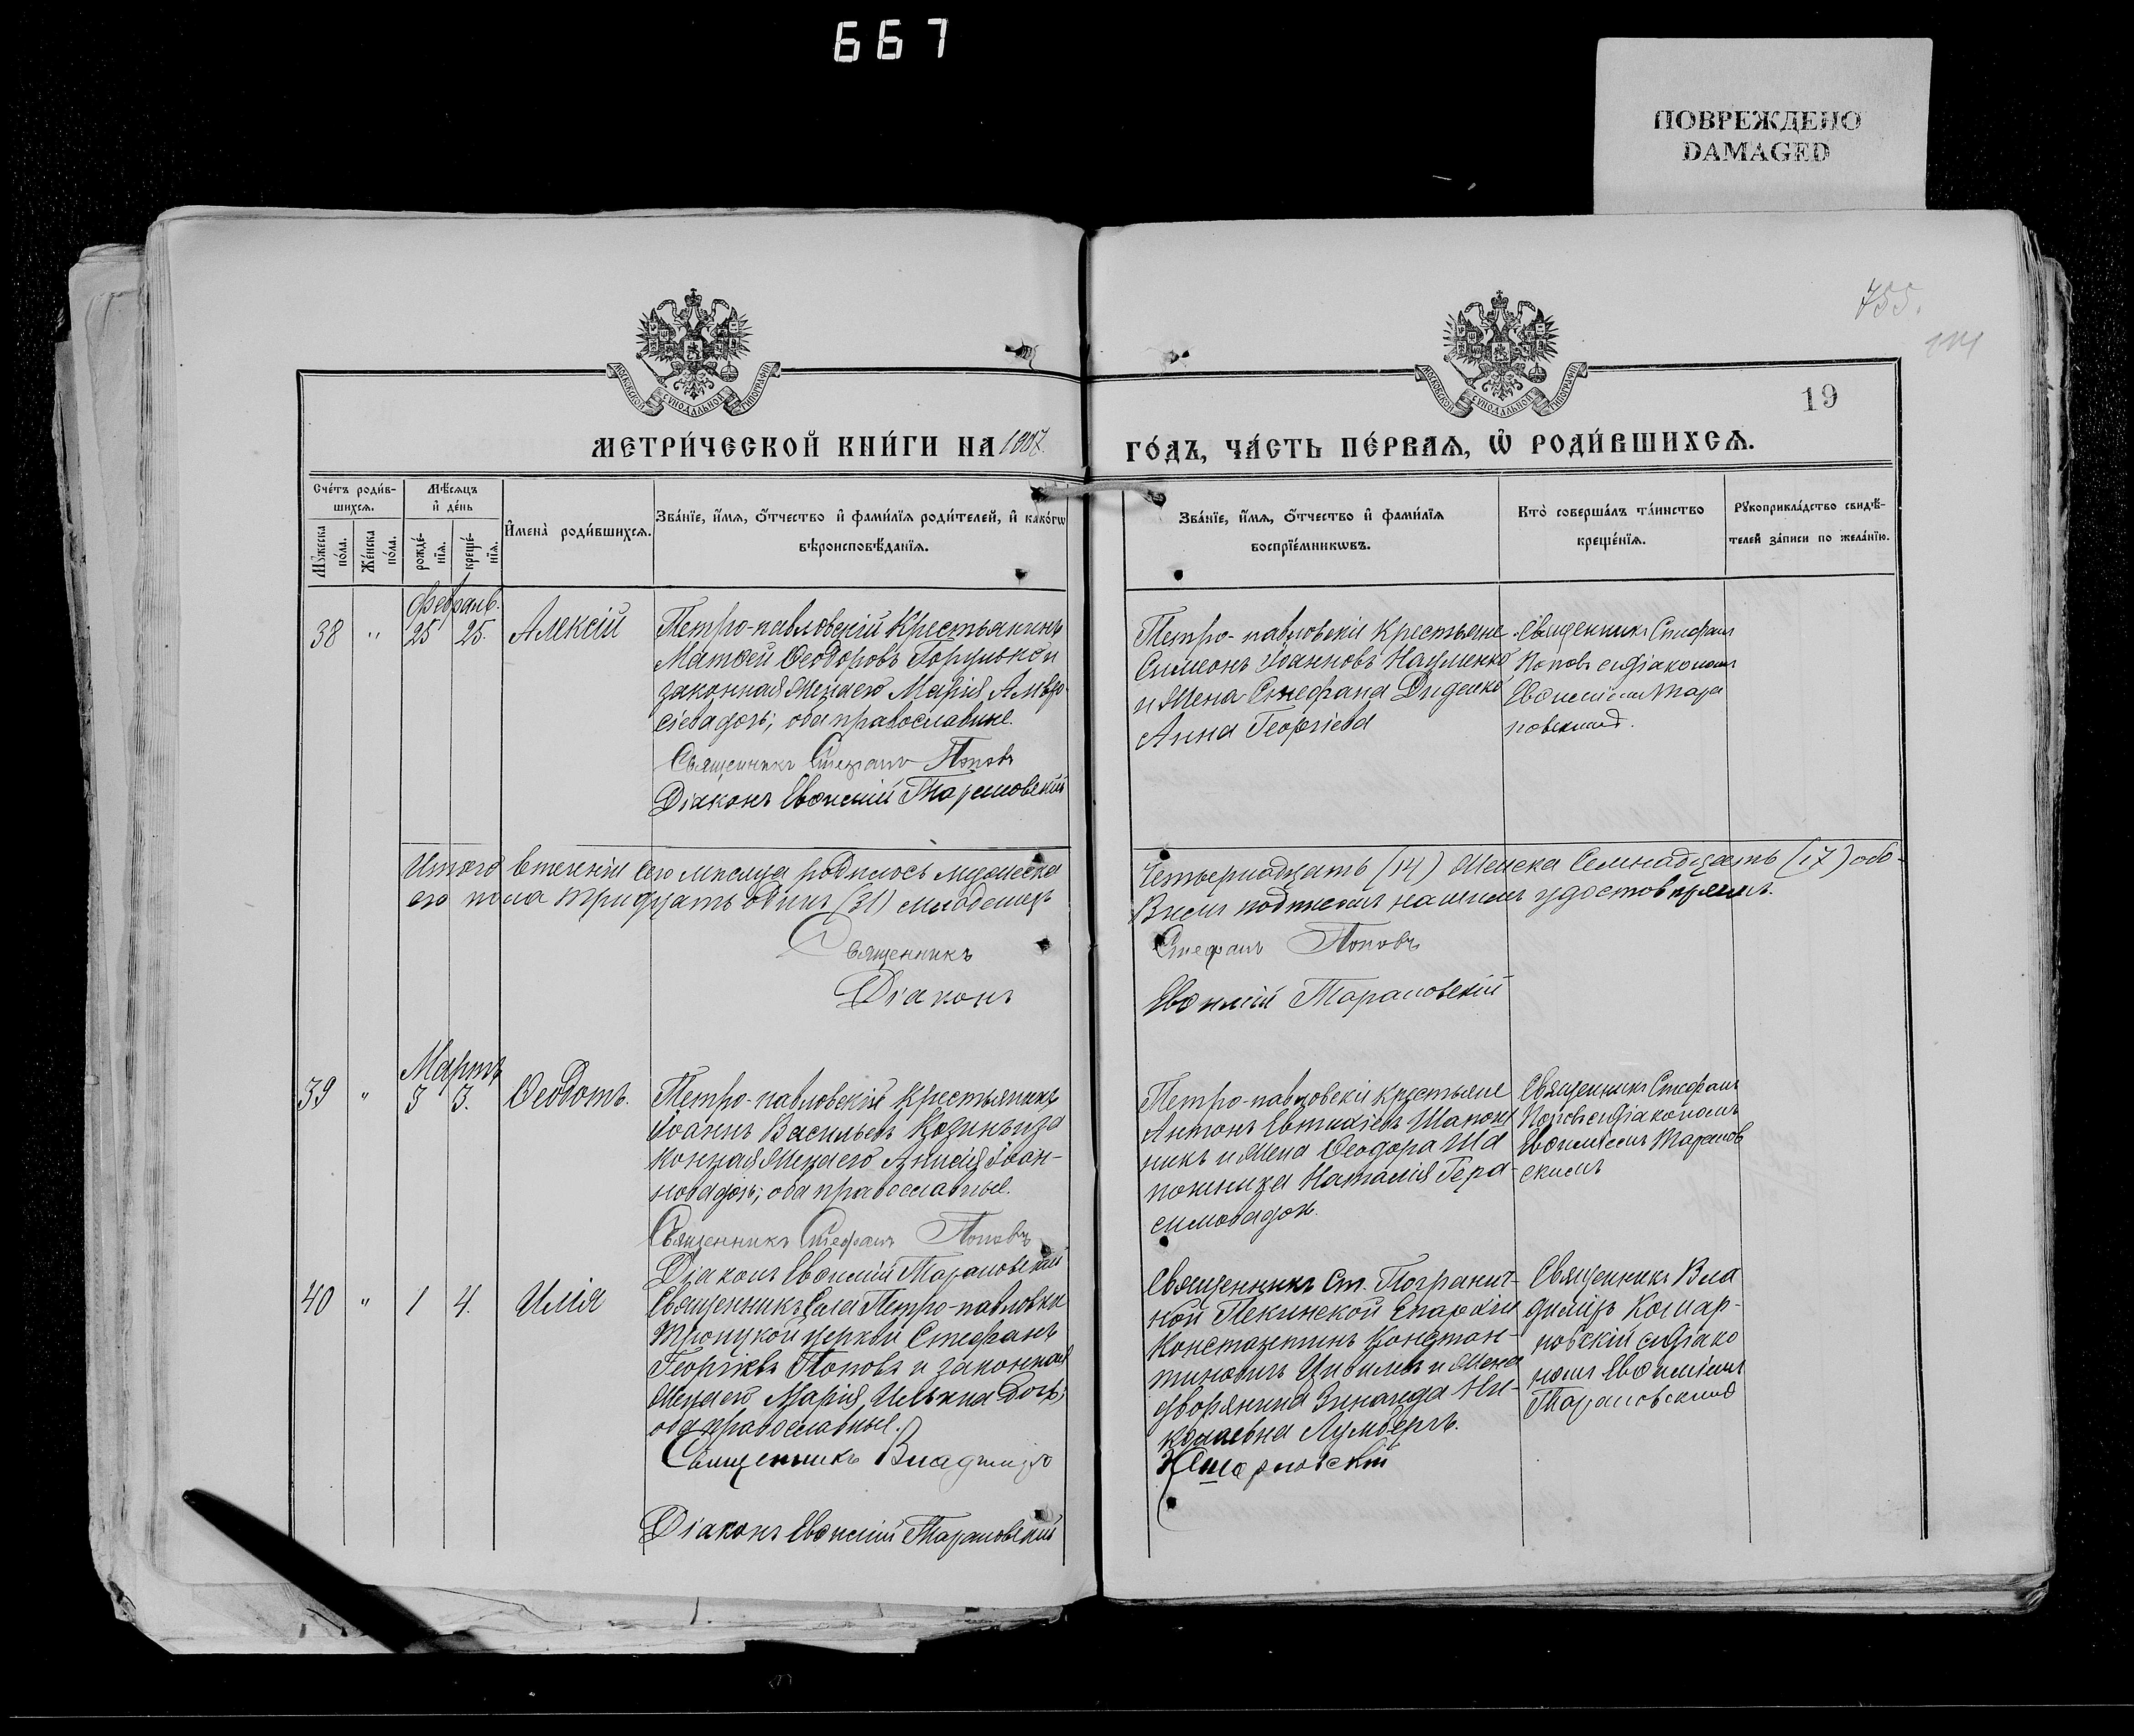 667
ПОВРЕЖДЕНО
DAMAGED
755.
19
МЕТРИ́ЧЕСКОЙ КНИ́ГИ НА 1907.
ГО́ДЪ, ЧА́СТЬ ПЕ́РВАЯ, Ѽ РОДИ́ВШИХСЯ.
МОСКОВСКОЙ СѴНОДАЛЬНОЙ ТИПОГРАФІИ
МОСКОВСКОЙ СѴНОДАЛЬНОЙ ТИПОГРАФІИ
Сче́тъ роди́в-
шихся.
Мѣ́сяцъ
и҆ де́нь
Мꙋ́жеска
по́ла.
Же́нска
по́ла.
рожде́-
нїя.
креще́-
нїя.
И҆мена̀ роди́вшихся.
Зва́нїе, и҆́мя, ѻ҆́тчество и҆ фами́лїя роди́телей, и҆ како́гѡ
вѣроисповѣ́данїя.
Зва́нїе, и҆́мя, ѻ҆́тчество и҆ фами́лїя
воспрїе́мникѡвъ.
Кто̀ соверша́лъ та́инство
креще́нїя.
Рꙋкоприкла́дство свидѣ́-
телей за́писи по жела́нїю.
Февраль.
38 " 25 25. Алексій
Петро-павловскій Крестьянинъ
Матѳей Ѳеодоровъ Горулько и
законная жена его Марія Амвро-
сіева дочь; оба православные.
Священникъ Стефанъ Поповъ
Діаконъ Евѳимій Тарановскій
Петро-павловскіе Крестьяне
Симеонъ Іоанновъ Науменко
и жена Стефана Диденко
Анна Георгіева
Священникъ Стефанъ
Поповъ съ діакономъ
Евѳиміемъ Тара
новскимъ.
Итого в теченіи сего месяца родилось мужеска
го пола тридцать одинъ (31) младенецъ
Священникъ
Діаконъ
Четырнадцать (14) Женска Семнадцать (17) обо-
Стефанъ Поповъ
Евѳимій Тарановскій
Мартъ
39 " 3 3. Ѳеодотъ.
Петро-павловскій Крестьянинъ
Іоаннъ Васильевъ и за
конная жена его Анисія Іоан-
нова дочь; оба православные.
Священникъ Стефанъ Поповъ
Діаконъ Евѳимій Тарановскій
Петро-павловскіе крестьяне
Антонъ Евтихіевъ Шапош
никъ и жена Ѳеодора Ша
пошника Наталія Гера-
симова доч.
Священникъ Стефанъ
Поповъ съ діакономъ
Евѳиміемъ Таранов
скимъ
40 " 1 4. Илія
Священникъ Села Петро-павловки
Троицкой церкви Стефанъ
Георгіевъ Поповъ и законная
жена его Марія Ильина дочь;
оба православные.
Священникъ Владиміръ
Діаконъ Евѳимій Тарановскій
Священникъ Ст. Погранич-
ной Пекинской Епархіи
Константинъ Констан-
тиновичъ и жена
дворянина Зинаида Ни-
колаевна Лумбергъ.
Комарновскій
Священникъ Вла
диміръ Комар-
новскій съ діако
номъ Евѳиміемъ
Тарановскимъ